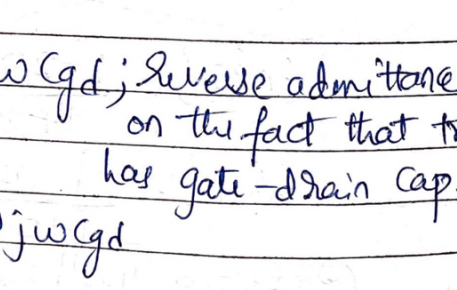 ω Cgd ; Reverse admittance
on the fact that
has gate-drain Cap.
jω Cgd